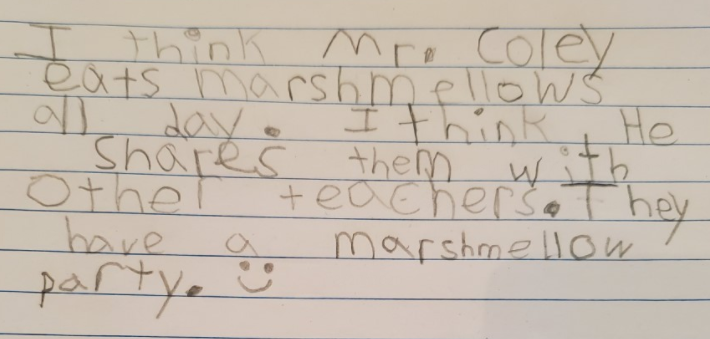 I think Mr. Coley
eats marshmellows
all day. I think He
shares them with
other teachers. They
have a marshmellow
party. :)